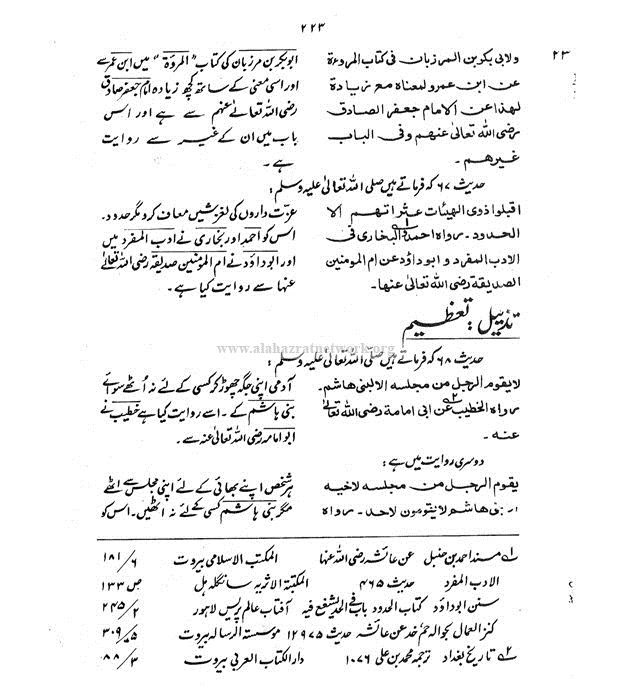 ۲۲۳
۲۳
ولابی بکر بن المرزبان فی کتاب المروءة
عن ابن عمرو لمعناه مع زیادة
لهذا عن الامام جعفر الصادق
رضی الله تعالٰی عنهم وفی الباب
غیرهم۔
ابوبکر بن مرزبان کی کتاب "المروّة" میں ابن عمر سے
اور اسی معنی کے ساتھ کچھ زیادہ امام جعفر صادق
رضی اللہ تعالٰی عنہم سے ہے اور اس
باب میں ان کے غیر سے روایت
ہے۔
حدیث ۶۷ کہ فرماتے ہیں صلی اللہ تعالٰی علیہ وسلم:
اقیلوا ذوی الهیئات عثراتهم الا
الحدود۔ رواه احمد والبخاری فی
الادب المفرد و ابوداؤد عن ام المومنین
الصدیقة رضی الله تعالٰی عنها۔
عزت داروں کی لغزشیں معاف کرو مگر حدود۔
اس کو احمد اور بخاری نے ادب المفرد میں
اور ابوداؤد نے ام المومنین صدیقہ رضی اللہ تعالٰی
عنہا سے روایت کیا ہے۔
تذییل: تعظیم
www.alahazratnetwork.org
حدیث ۶۸ کہ فرماتے ہیں صلی اللہ تعالٰی علیہ وسلم:
لایقوم الرجل من مجلسه الا لبنی هاشم۔
رواه الخطیب عن ابی امامة رضی الله تعالٰی
عنه۔
آدمی اپنی جگہ چھوڑ کر کسی کے لئے نہ اُٹھے سوائے
بنی ہاشم کے۔ اسے روایت کیا ہے خطیب نے
ابوامامہ رضی اللہ تعالٰی عنہ سے۔
دوسری روایت میں ہے:
یقوم الرجل من مجلسه لاخیه
الا بنی هاشم لایقومون لاحد۔ رواه
ہر شخص اپنے بھائی کے لئے اپنی مجلس سے اٹھے
مگر بنی ہاشم کسی کے لئے نہ اٹھیں۔ اس کو
۱ مسند احمد بن حنبل عن عائشہ رضی اللہ عنہا المکتب الاسلامی بیروت ۶/ ۱۸۱
الادب المفرد حدیث ۴۶۵ المکتبۃ الاثریہ سانگلہ ہل ص ۱۳۳
سنن ابوداؤد کتاب الحدود باب فی الحد یشفع فیہ آفتاب عالم پریس لاہور ۲/ ۲۴۵
کنز العمال بحوالہ حم خد عن عائشہ حدیث ۱۲۹۷۵ مؤسسۃ الرسالہ بیروت ۵/ ۳۰۹
۲ تاریخ بغداد ترجمہ محمد بن علی ۱۰۷۶ دارالکتاب العربی بیروت ۳/ ۸۸